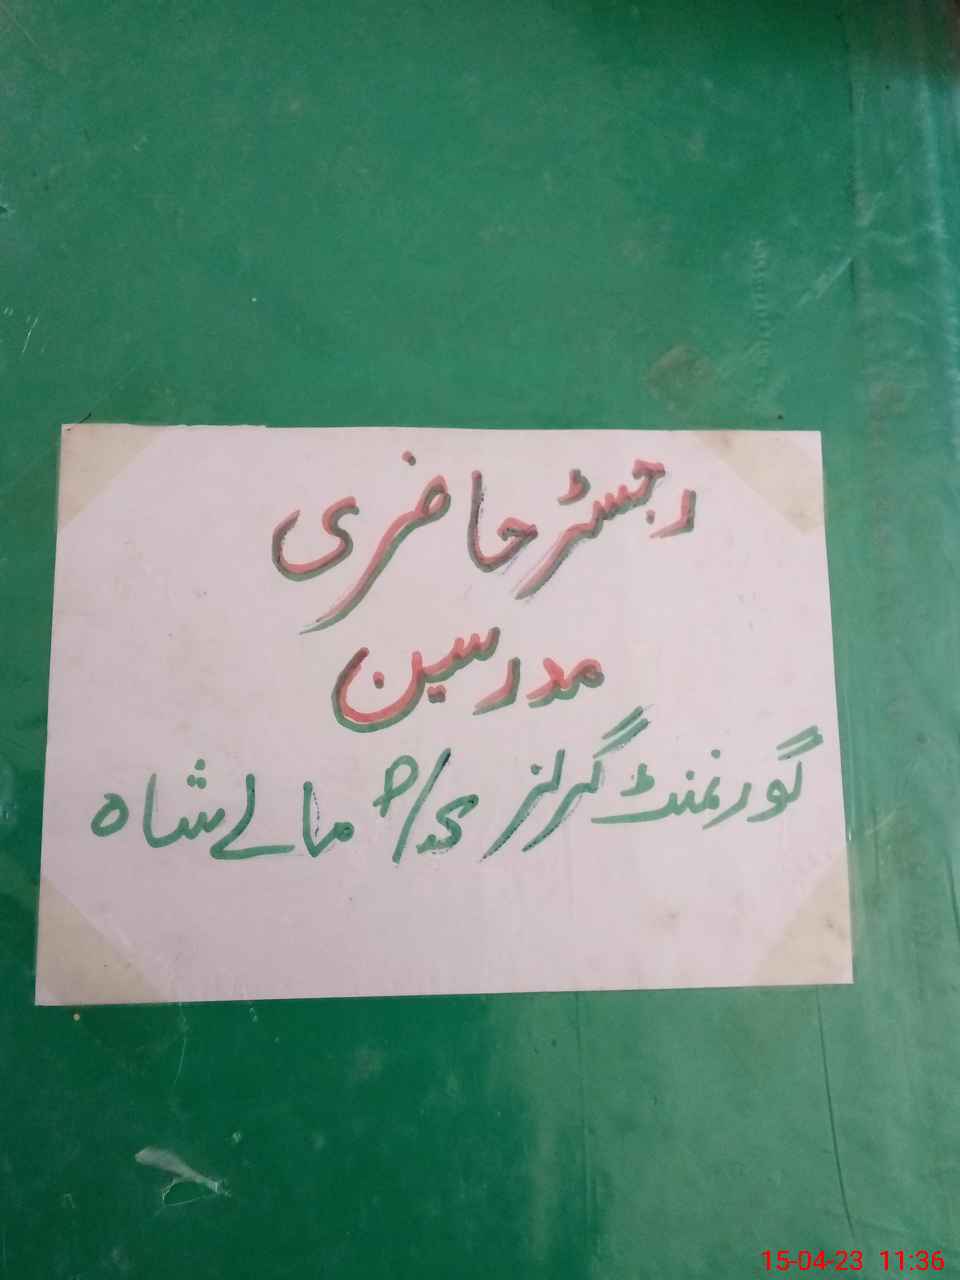 رجسٹر حاضری
مدرسین
گورنمنٹ گرلز مالے شاہ
15-04-23 11:36